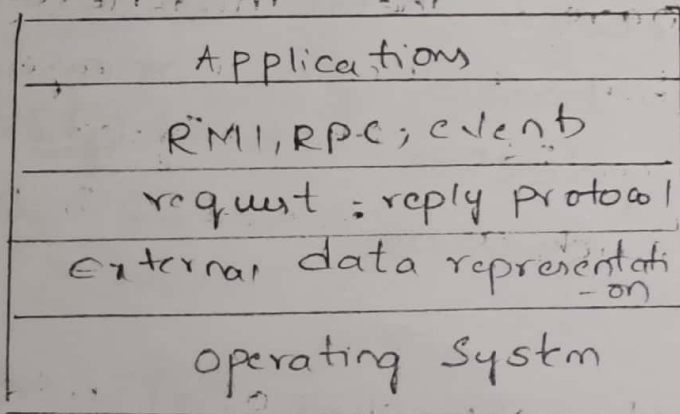 Applications
RMI, RPC, event
request : reply protocol
External data representati
- on
operating System